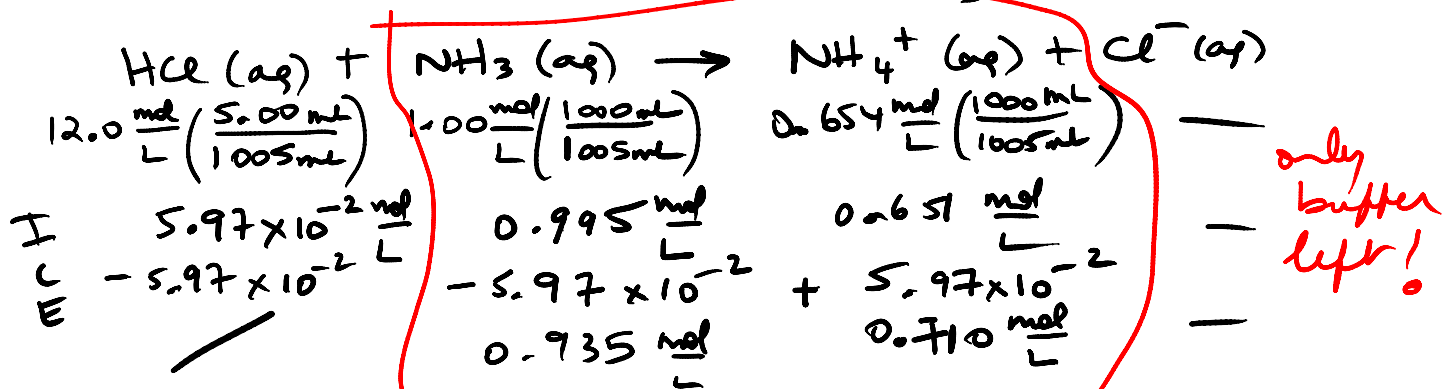 HCl (aq) + NH₃ (aq) → NH₄⁺ (aq) + Cl⁻ (aq)
12.0 mol/L (5.00 mL/1005 mL) 1.00 mol/L (1000 mL/1005 mL) 0.654 mol/L (1000 mL/1005 mL) —
I 5.97 × 10⁻² mol/L 0.995 mol/L 0.651 mol/L —
C - 5.97 × 10⁻² - 5.97 × 10⁻² + 5.97 × 10⁻²
E 0.935 mol/L 0.710 mol/L —
only
buffer
left!